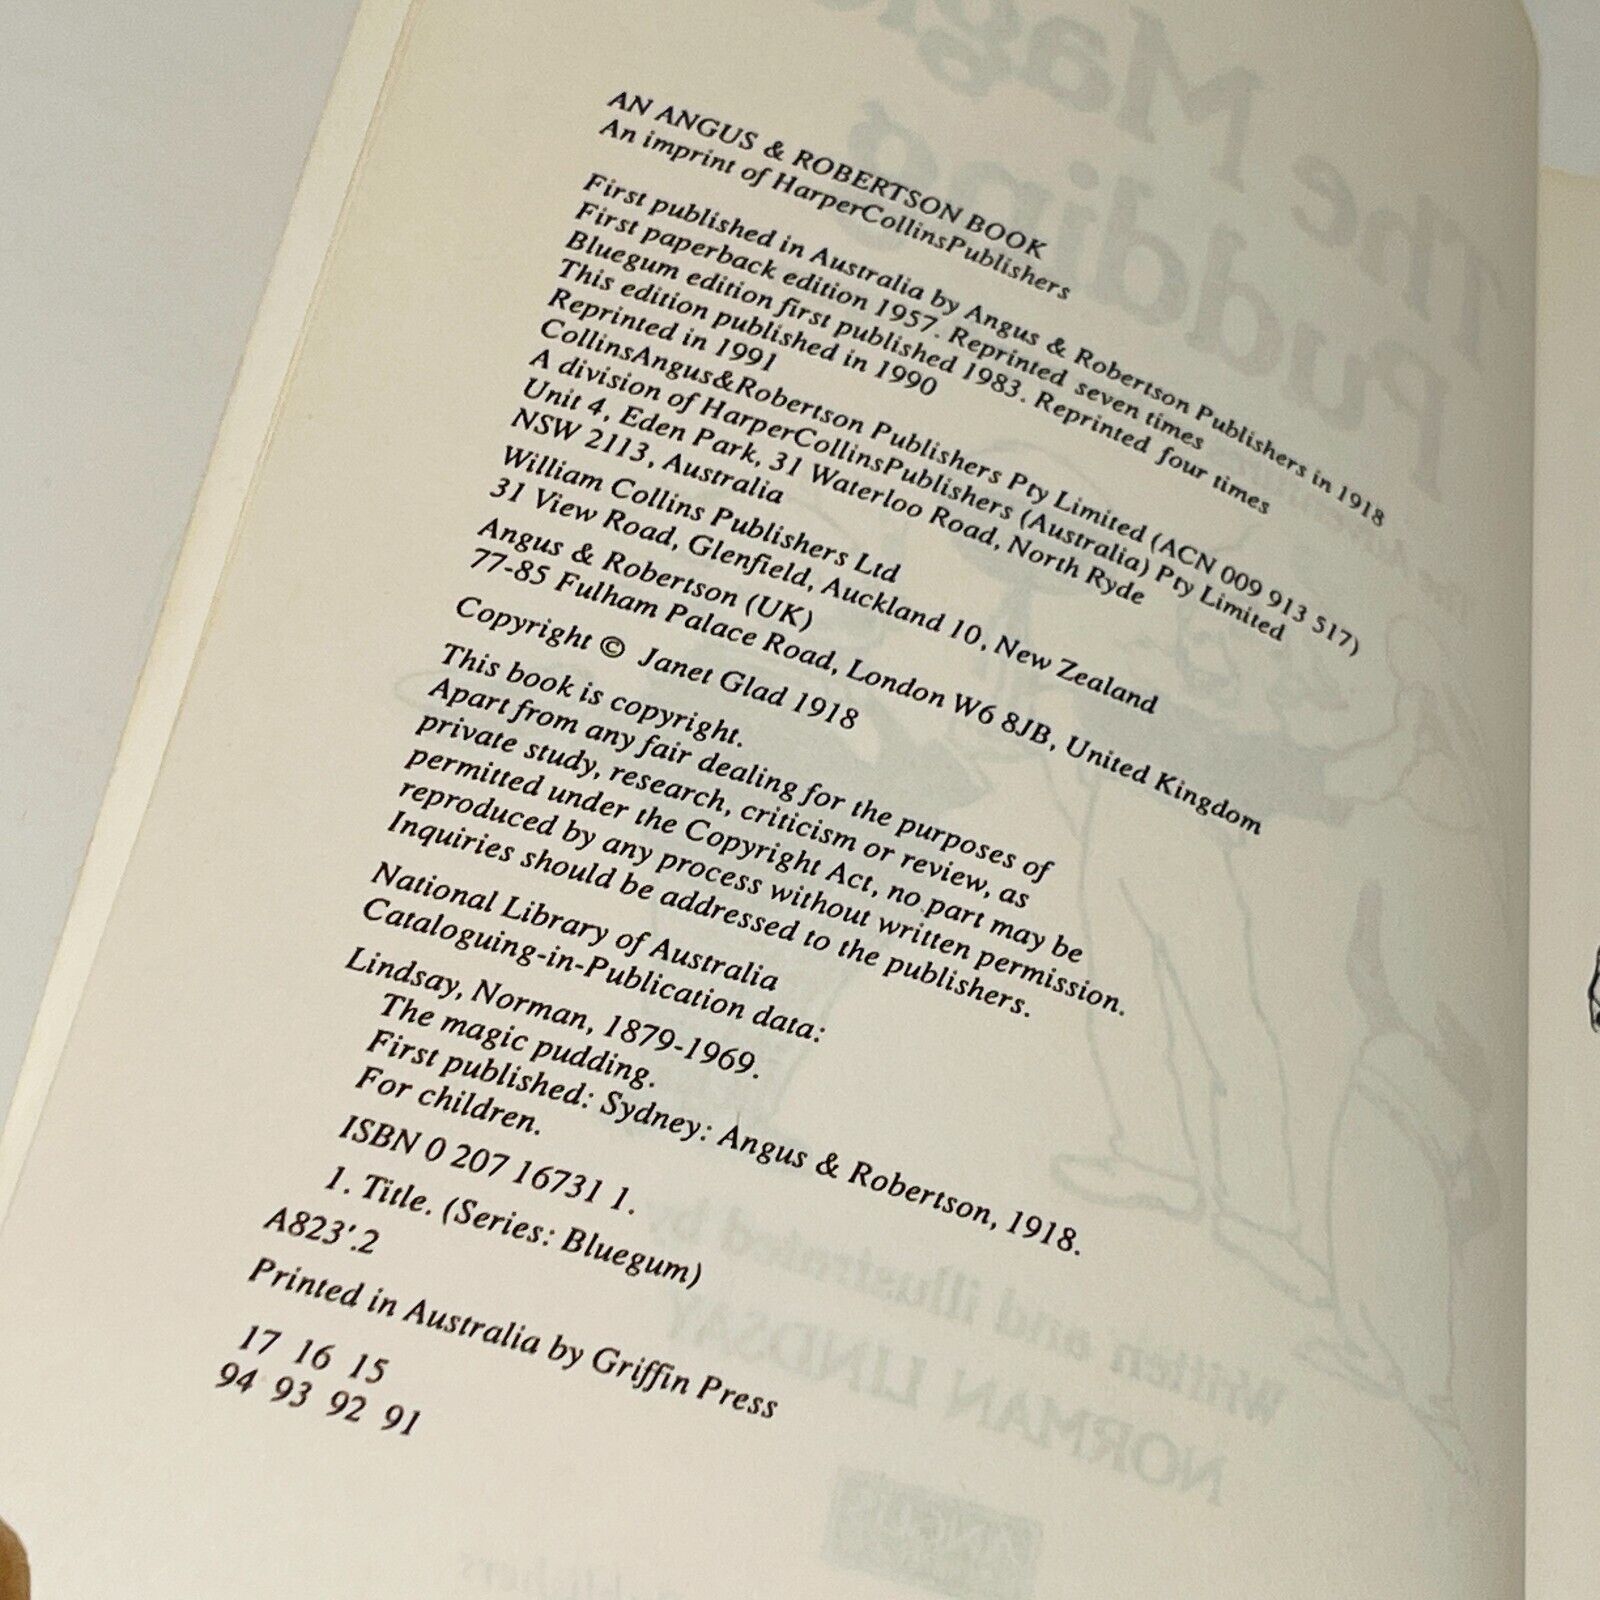 AN ANGUS & ROBERTSON BOOK
An imprint of HarperCollinsPublishers
First published in Australia by Angus & Robertson Publishers in 1918
First paperback edition 1957. Reprinted seven times
Bluegum edition first published 1983. Reprinted four times
This edition published in 1990
Reprinted in 1991
CollinsAngus&Robertson Publishers Pty Limited (ACN 009 913 517)
A division of HarperCollinsPublishers (Australia) Pty Limited
Unit 4, Eden Park, 31 Waterloo Road, North Ryde
NSW 2113, Australia
William Collins Publishers Ltd
31 View Road, Glenfield, Auckland 10, New Zealand
Angus & Robertson (UK)
77-85 Fulham Palace Road, London W6 8JB, United Kingdom
Copyright © Janet Glad 1918
This book is copyright.
Apart from any fair dealing for the purposes of
private study, research, criticism or review, as
permitted under the Copyright Act, no part may be
reproduced by any process without written permission.
Inquiries should be addressed to the publishers.
National Library of Australia
Cataloguing-in-Publication data:
Lindsay, Norman, 1879-1969.
The magic pudding.
First published: Sydney: Angus & Robertson, 1918.
For children.
ISBN 0 207 16731 1.
1. Title. (Series: Bluegum)
A823'.2
Printed in Australia by Griffin Press
17 16 15
94 93 92 91
The Magic
Pudding
Written and illustrated by
NORMAN LINDSAY
ANGUS